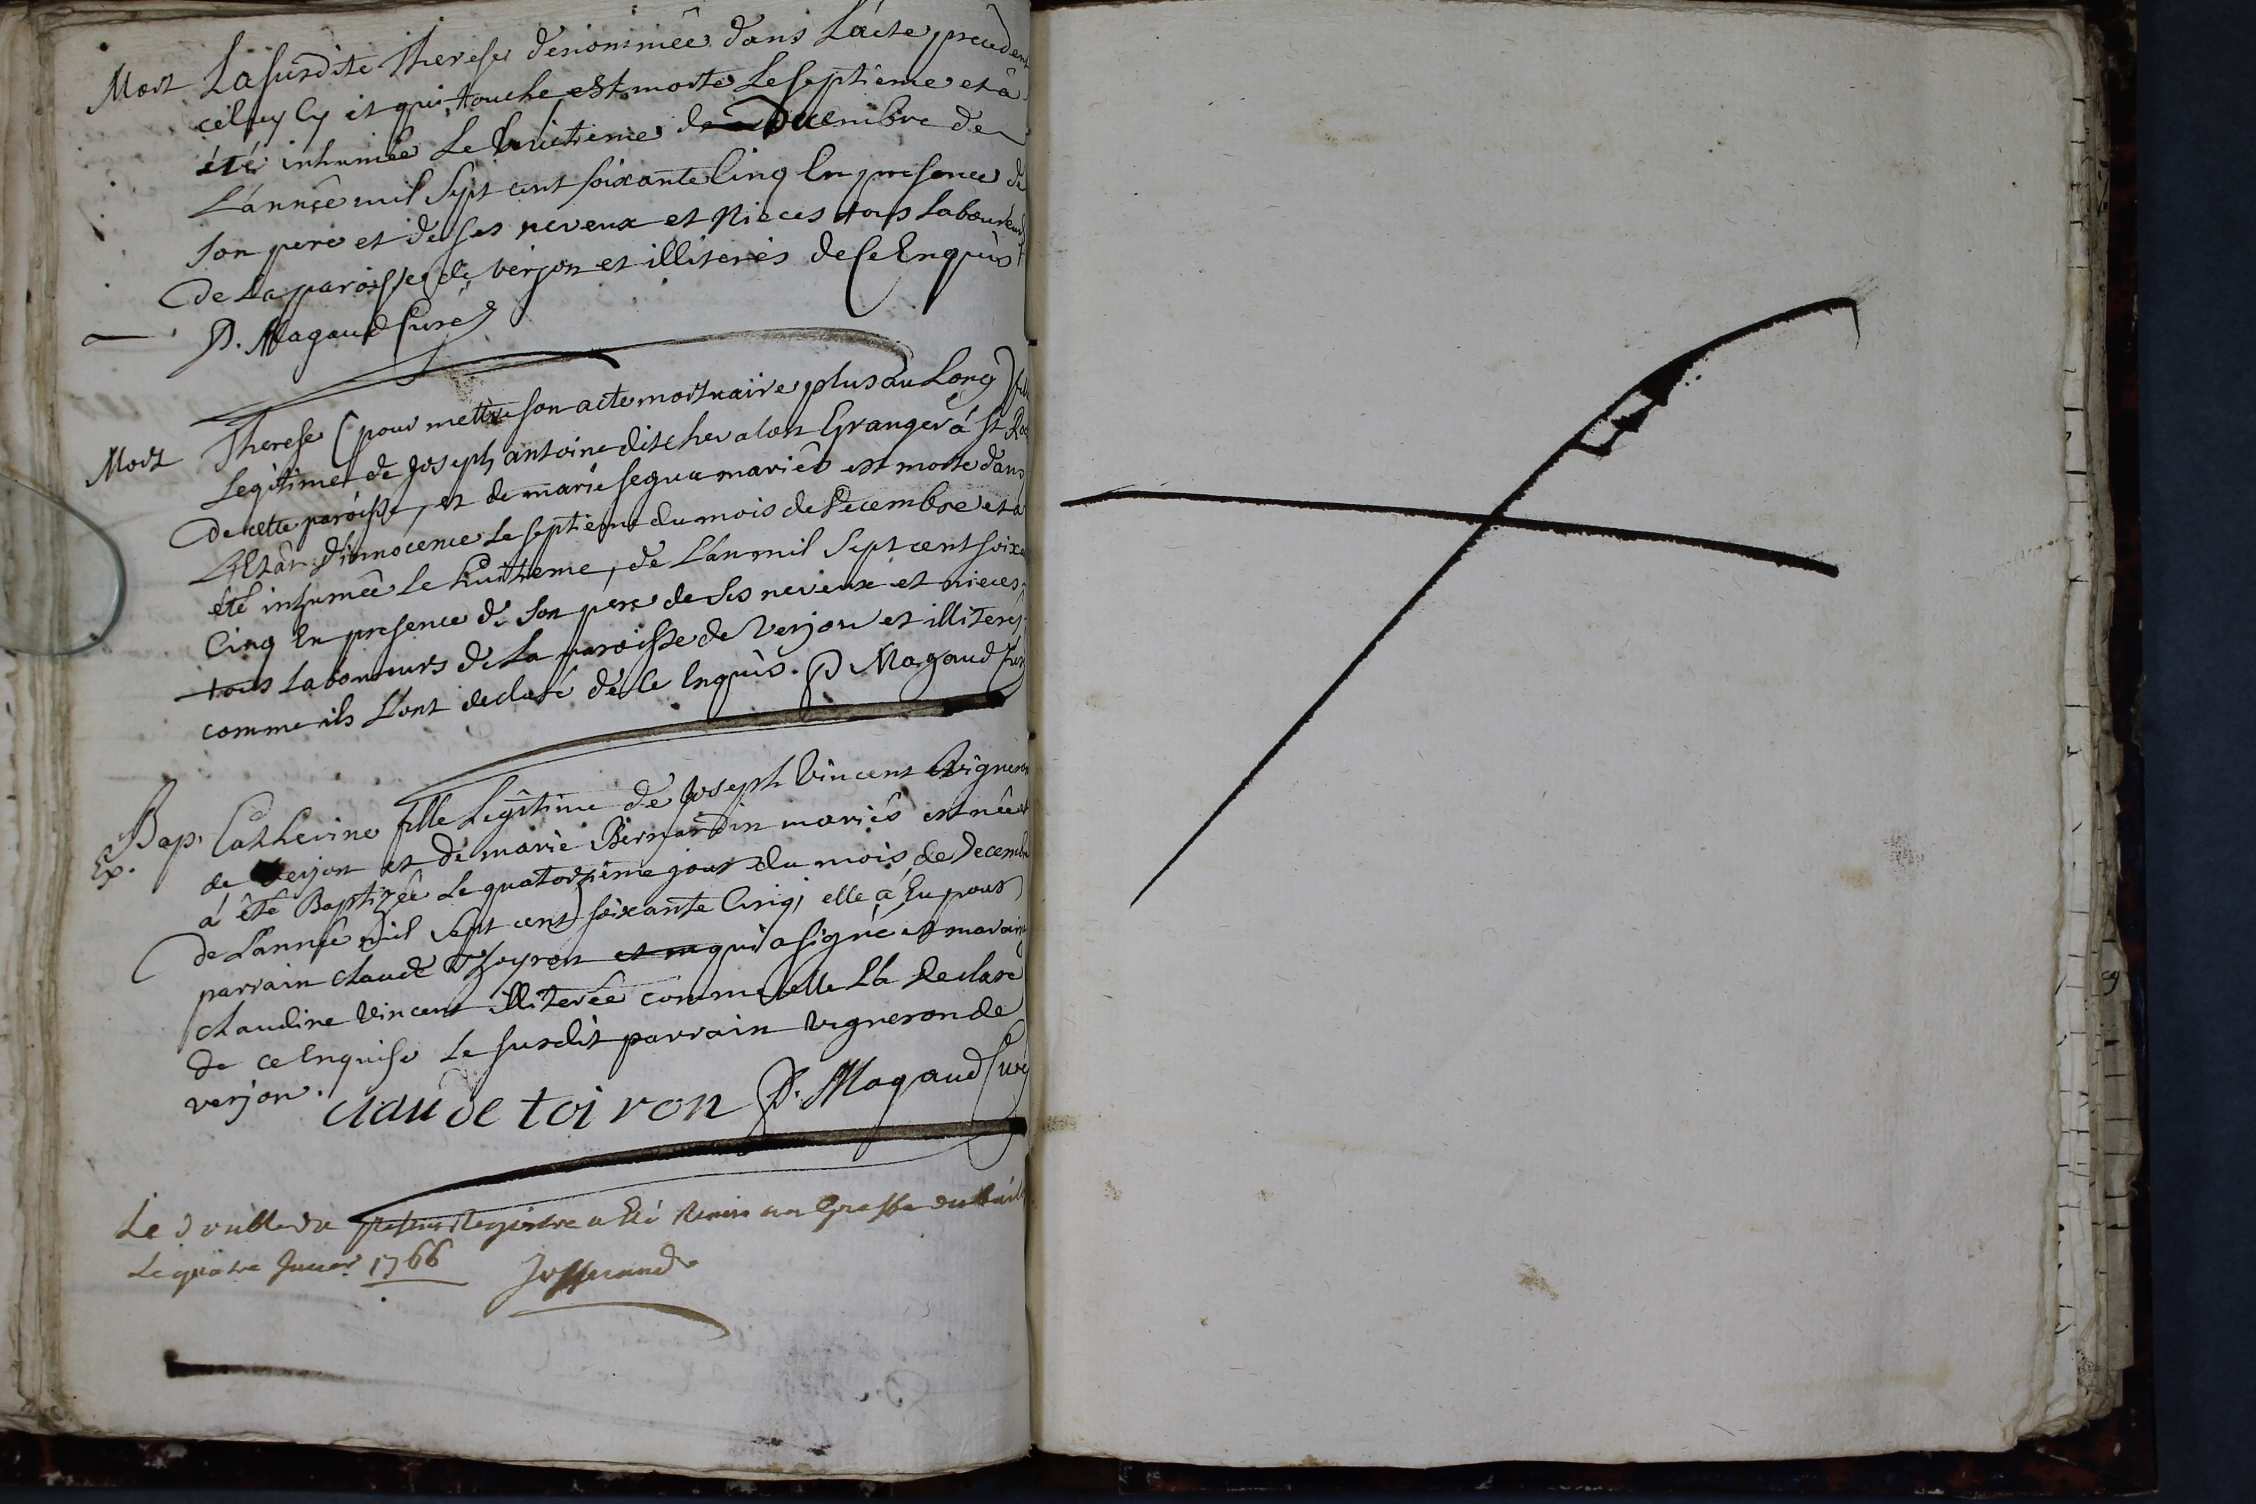 Mort La susdite Therese denommée dans L'acte précédent
celuy cy et qui touche est morte Le septieme et à
été inhumée Le huitieme de Decembre de
L'année mil sept cent soixante Cinq En presence de
son pere et de ses neveux et nieces tous Laboureurs
De La paroisse de verjon et illiterés de Ce Enquis
P. Magaud Curé
Mort Therese (pour mettre son acte mortuaire plus au Long) fille
Legitime de Joseph antoine dit chevalon Granger á St
de cette paroisse, et de marie segua mariés est morte dans
L'Etât d'innocence Le septieme du mois de Decembre et a
été inhumée Le huitieme, de L'an mil sept cent soixa
Cinq En presence de son pere de ses neveux et nieces,
tous Laboureurs de La paroisse de Verjon et illiterés,
comme ils L'ont declaré de Ce Enquis. P Magaud Curé
Bap. Catherine fille Legitime de Joseph Vincent Vigneron
Ex.
de verjon et de marie Bernardin mariés est née et
á été Baptizée Le quatorzieme jour du mois de Decembre
de L'année mil sept cent soixante Cinq; elle a Eu pour
parrain claude Thoyron et m qui a signé et maraine
claudine Vincent illiterée comme elle L'a Declaré
de ce Enquise Le susdit parrain vigneron de
verjon.
claude toiron P. Magaud Curé
Le double du present Registre a Eté Remis au Greffe du Bail
Le quatre Janvier 1766 Josserand